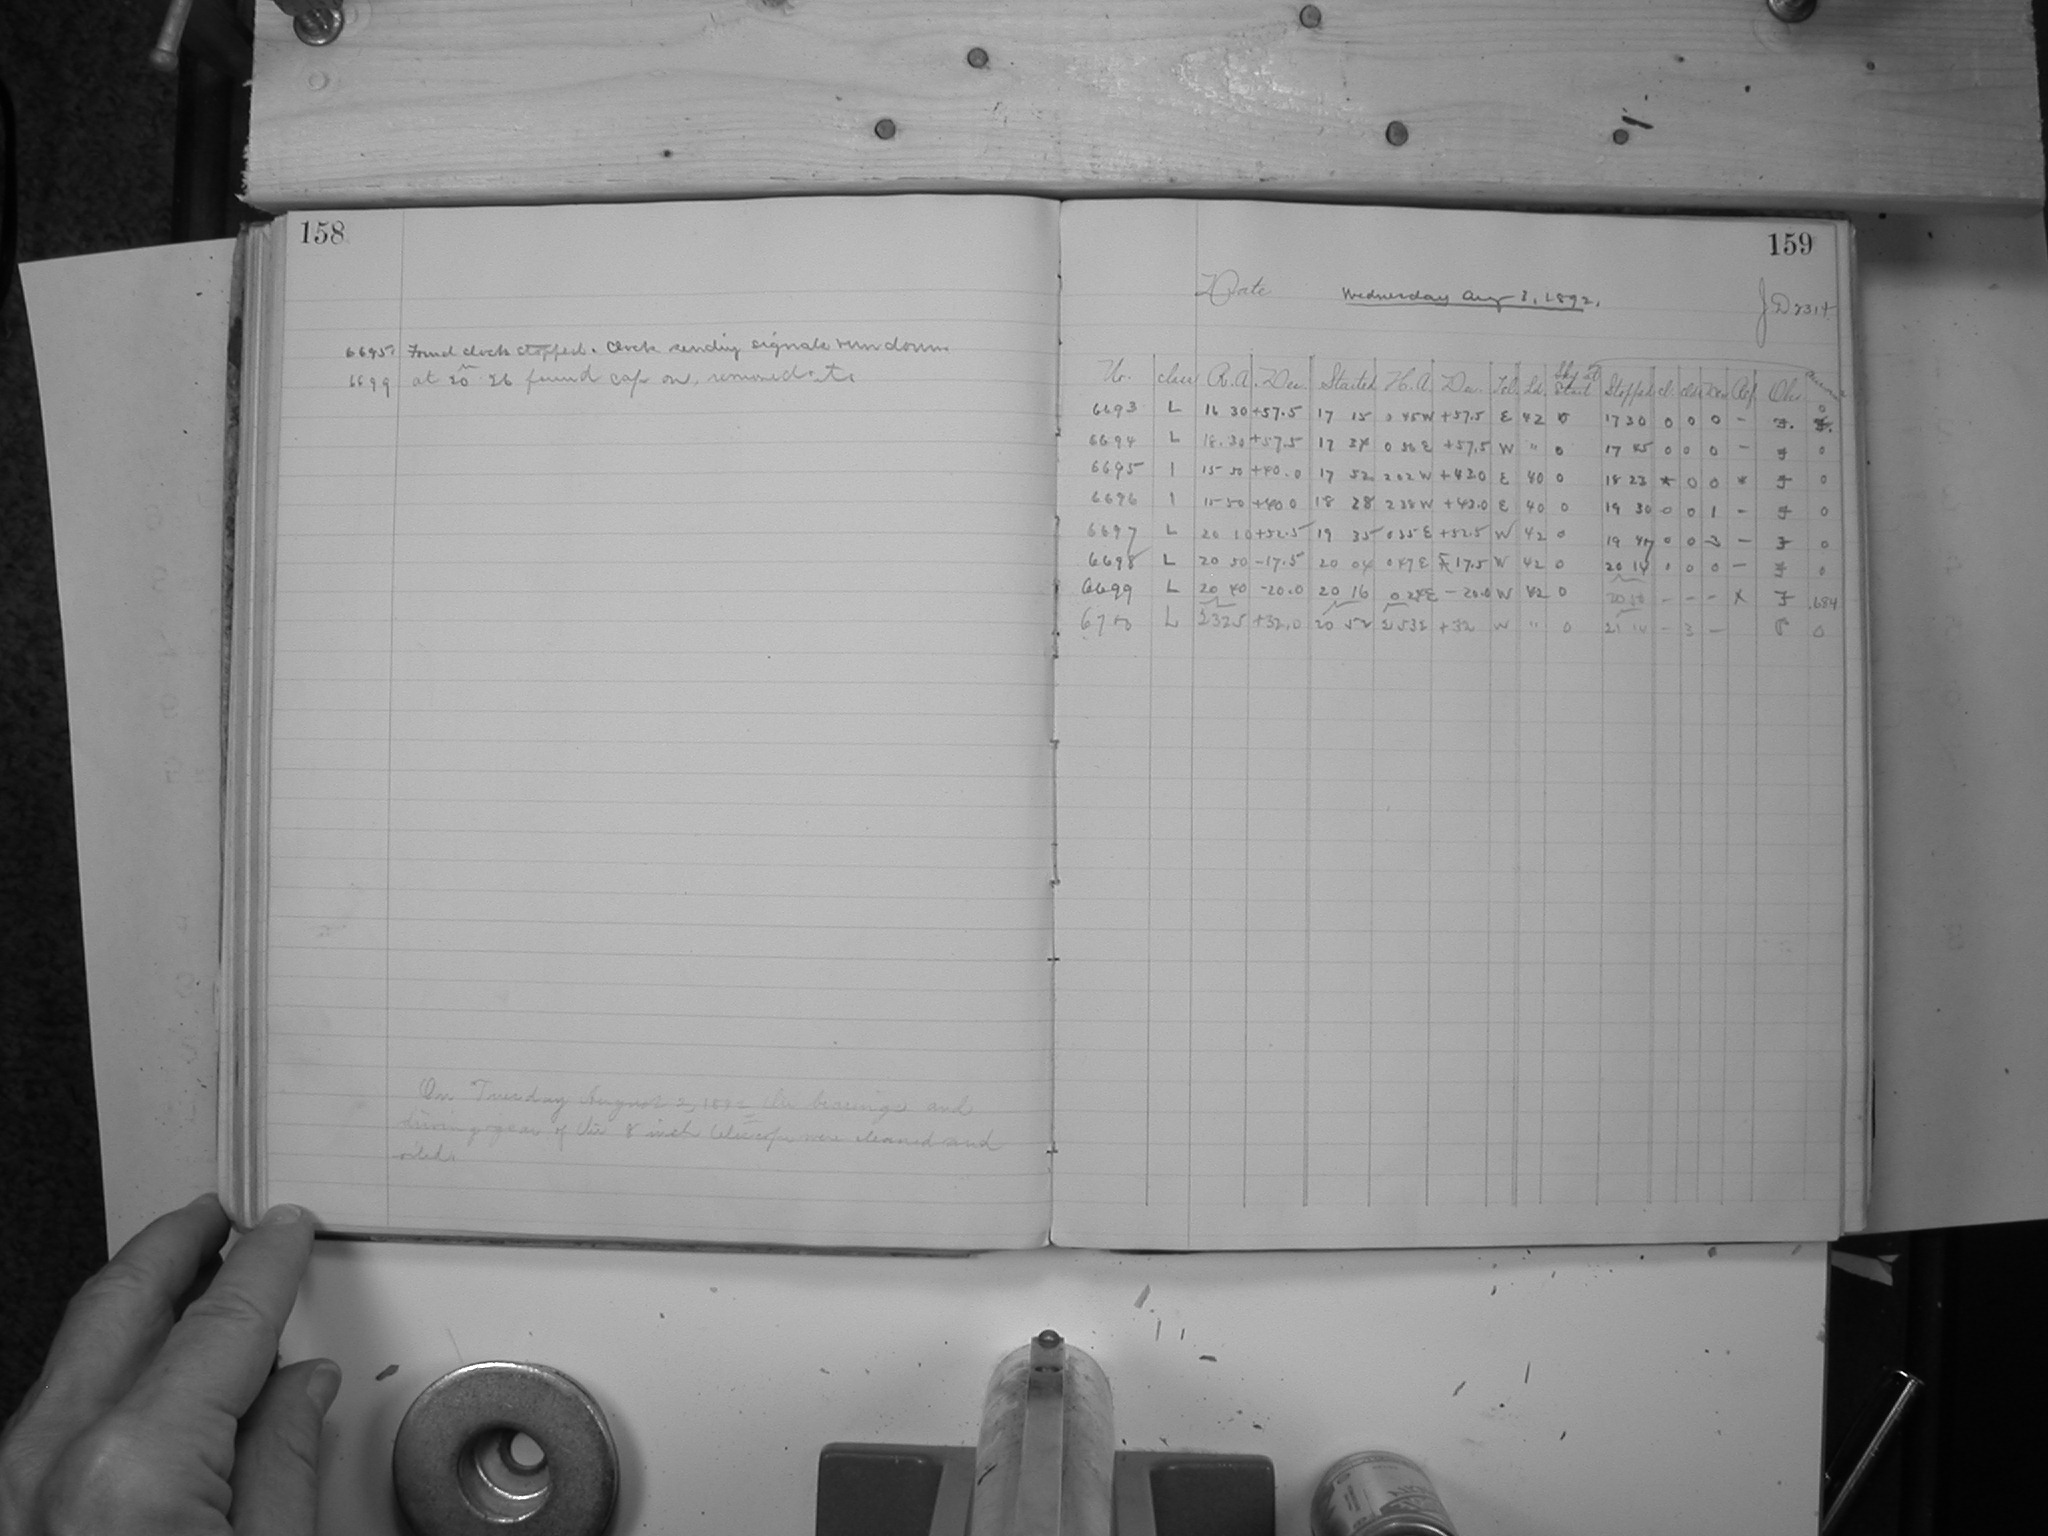 158
6695 Found clock stopped. Clock sending signals run down
6699 at 20 26 found cap on, removed it
On Tuesday August 2, 1892 the bearings and
driving gear of the 8 inch telescope were cleaned and
oiled.
159
Date Wednesday Aug 3, 1892. JD 2314
No. class R.A. Dec. Started H.A. Dec. Tel. Sky at Start Stopped cl. Obs
6693 L 16 30 +57.5 17 15 0 45W +57.5 E 42 0 17 30 0 0 0 - F. 0
6694 L 18.30 +57.5 17 34 0 56 E +57.5 W " 0 17 45 0 0 0 - F 0
6695 1 15 50 +40.0 17 52 2 02 W +43.0 E 40 0 18 23 * 0 0 * F 0
6696 1 15 50 +40.0 18 28 2 38W +43.0 E 40 0 19 30 0 0 1 - F 0
6697 L 20 10 +52.5 19 35 0 35 E +52.5 W 42 0 19 47 0 0 3 - F 0
6698 L 20 50 -17.5 20 04 0 47 E 17.5 W 42 0 20 14 0 0 - F 0
6699 L 20 40 -20.0 20 16 0 24E -20.0 W 42 0 20 50 - - - X F .684
6700 L 2325 +32.0 20 52 2 53E +32 W " 0 21 14 - 3 - 0